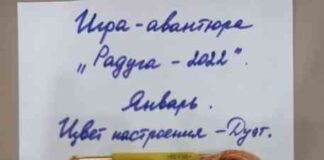 Игра-авантюра
„Радуга - 2022".
Январь.
Цвет настроения - Дуэт.